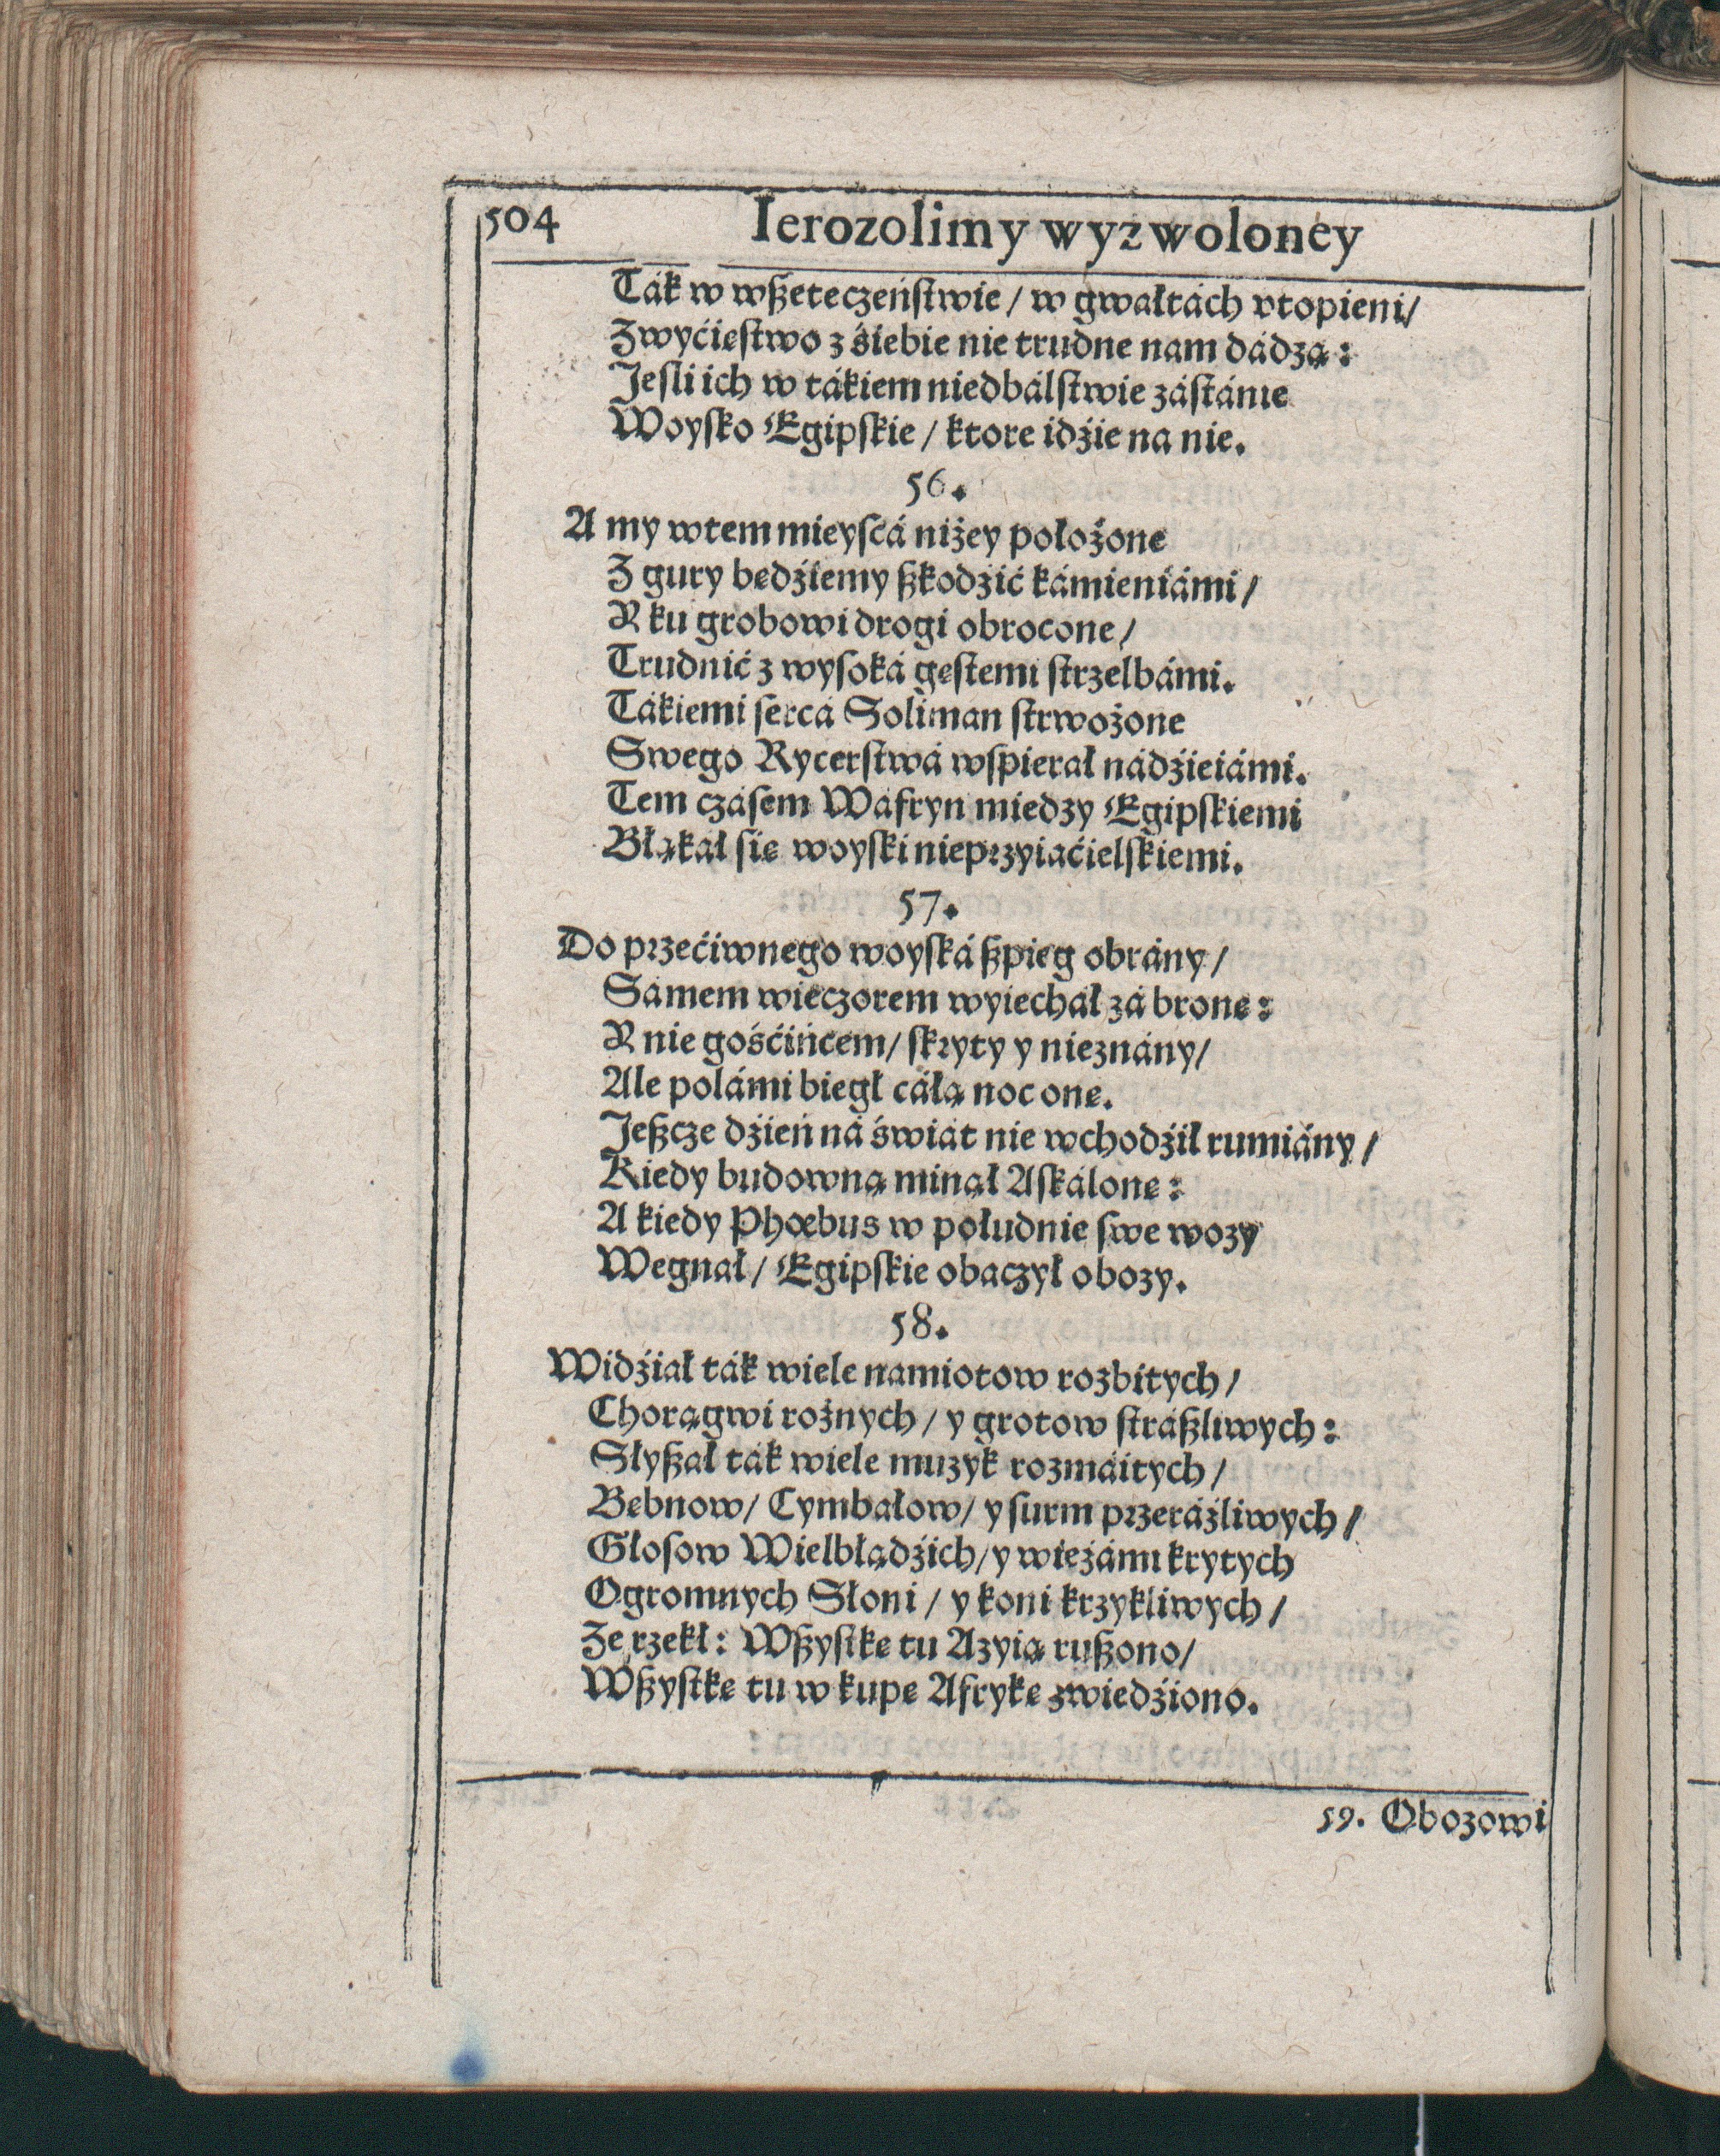 504 Ierozolimy wyzwoloney
Ták w wſzetecżeńſtwie / w gwałtách vtopieni /
Zwyćięſtwo z śiebie nie trudne nam dádzą:
Jeſli ich w tákiem niedbálſtwie záſtánie
Woyſko Egipſkie / ktore idźie na nie.
56.
A my wtem mieyſcá niżey położone
Z gury będźiemy ſzkodźić kámieniámi /
Y ku grobowi drogi obrocone /
Trudnić z wyſoká gęſtemi ſtrzelbámi.
Tákiemi ſercá Soliman ſtrwożone
Swego Rycerſtwá wſpierał nádźieiámi.
Tem czáſem Wáfryn miedzy Egipſkiemi
Błąkał ſię woyſki nieprzyiaćielſkiemi.
57.
Do przećiwnego woyſká ſzpieg obrány /
Sámem wieczorem wyiechał zá bronę:
Y nie gośćińcem / ſkryty y nieznány /
Ale polámi biegł cáłą noc onę.
Jeſzcze dźień ná świát nie wchodźił rumiány /
Kiedy budowną minął Aſkálonę:
A kiedy Phœbus w południe ſwe wozy
Wegnał / Egipſkie obaczył obozy.
58.
Widźiał ták wiele namiotow rozbitych /
Chorągwi rożnych / y grotow ſtráſzliwych:
Słyſzał ták wiele muzyk rozmáitych /
Bębnow / Cymbałow / y ſurm przeráźliwych /
Głoſow Wielbłądźich / y wieżámi krytych
Ogromnych Słoni / y koni krzykliwych /
Że rzekł: Wſzyſtkę tu Azyią ruſzono /
Wſzyſtkę tu w kupę Afrykę zwiedźiono.
59. Obozowi